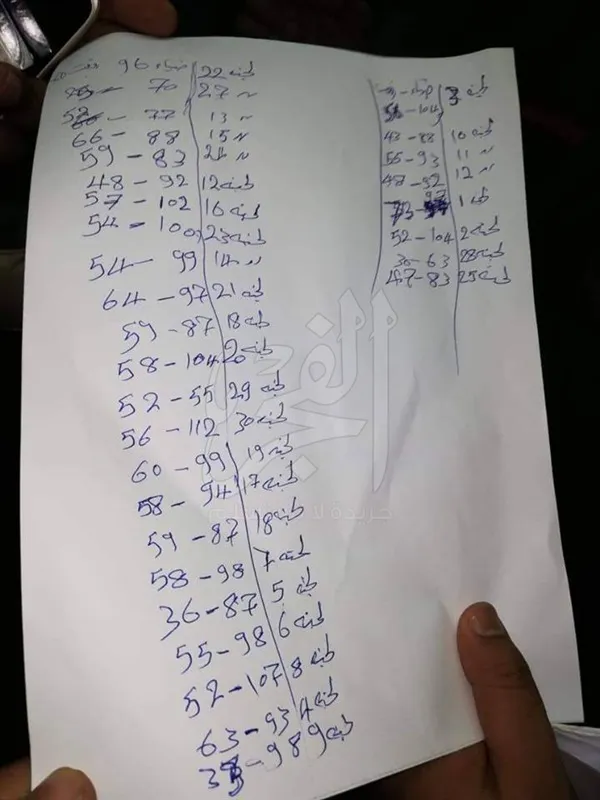 96 لجنة 22
70 27 〃
77 13 〃
66 - 88 15 〃
59 - 83 〃
48 - 92 لجنة 12
57 - 102 لجنة 16
54 - 100 لجنة 23
54 - 99 14 〃
64 - 97 لجنة 21
59 - 87 لجنة 18
58 - 104 لجنة 20
52 - 55 لجنة 29
56 - 112 لجنة 30
60 - 99 لجنة 19
58 - 94 لجنة 17
59 - 87 لجنة 18
58 - 98 لجنة 7
36 - 87 لجنة 5
55 - 98 لجنة 6
52 - 107 لجنة 8
63 - 93 لجنة 4
98 لجنة 9
لجنة 3
104
43 - 88 لجنة 10
55 - 93 11 〃
48 - 92 12 〃
97 لجنة 1
52 - 104 لجنة 2
36 - 63 لجنة 28
47 - 83 لجنة 25
الفجر